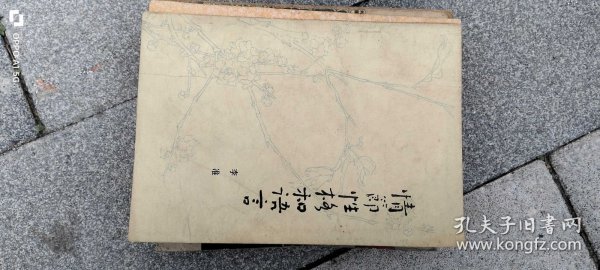 情节性格和语言
李準
孔夫子旧书网
www.kongfz.com